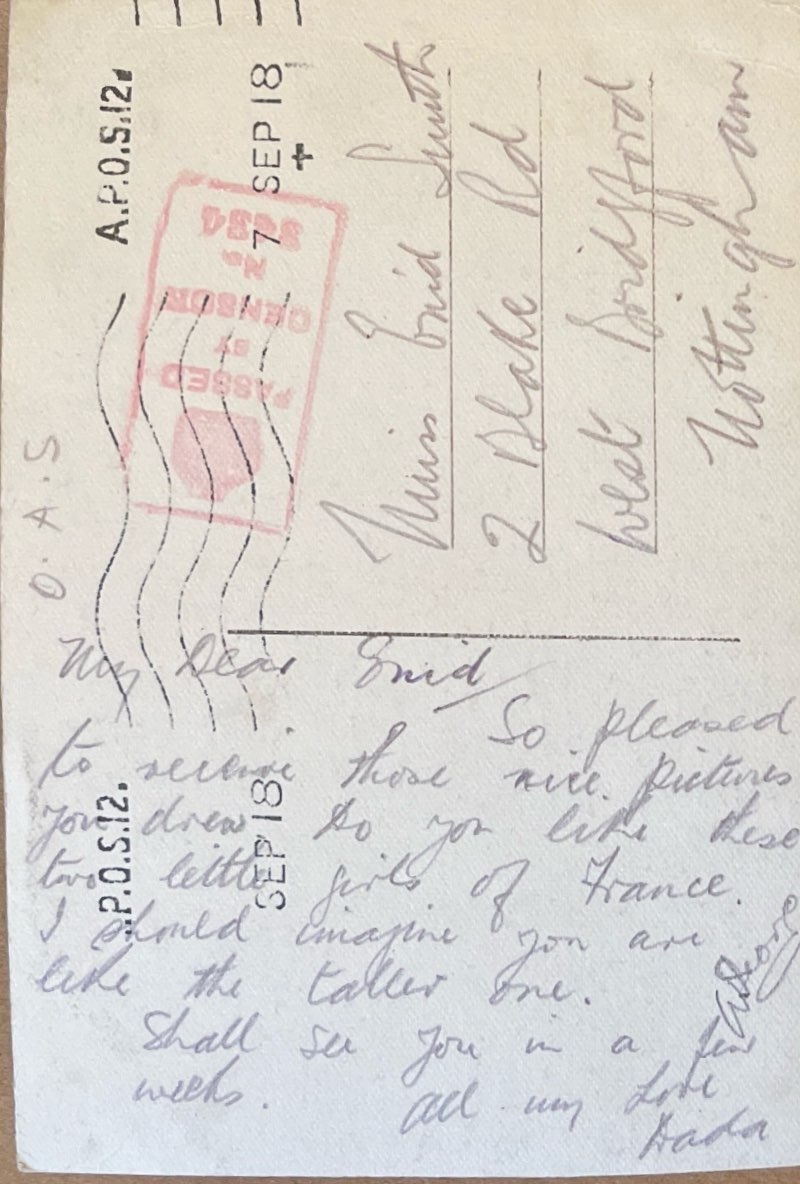 O.A.S
A.P.O.S.12.
7 SEP 18
.P.O.S.12.
SEP 18
PASSED
BY
CENSOR
No.
3434
Miss Enid Smith
2 Blake Rd
West Bridgford
Nottingham
My Dear Enid
So pleased
to receive those nice pictures
you drew Do you like these
two little girls of France.
I should imagine you are
like the taller one.
Shall see you in a few
weeks.
All my Love
Dada